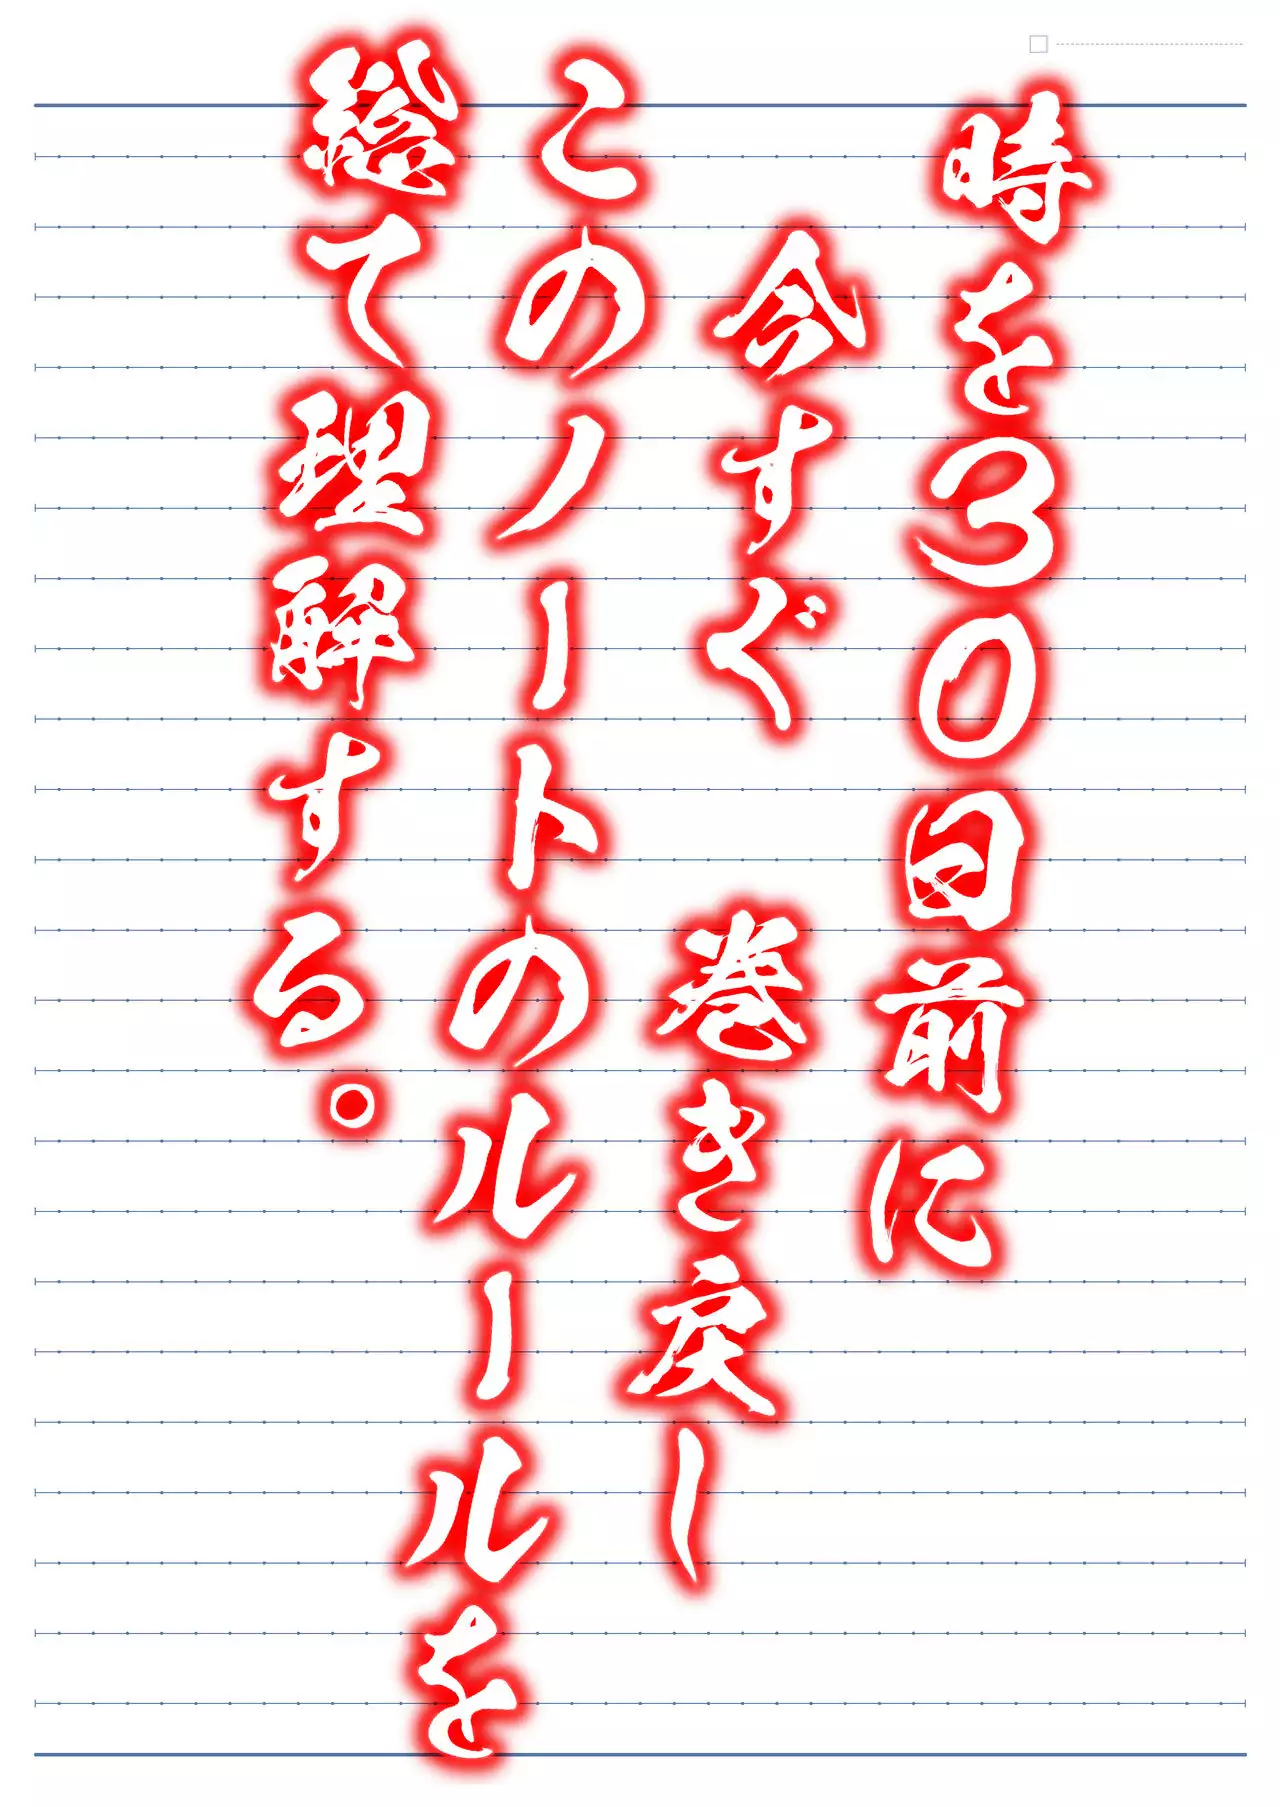 時を30日前に
今すぐ　巻き戻し
このノートのルールを
総て理解する。